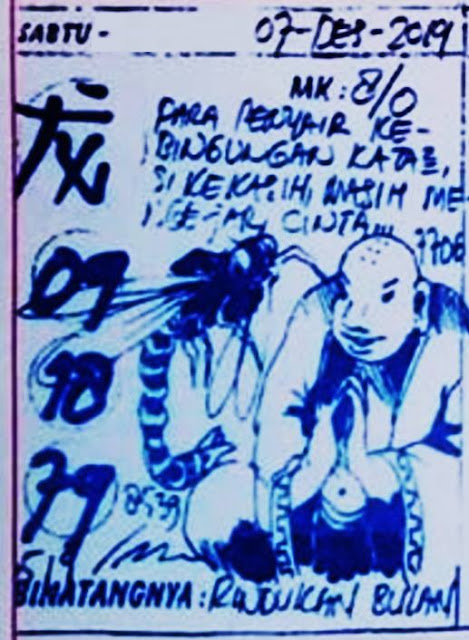 SABTU - 07-DES-2019
MK: 8/0
PARA PENYAIR KE-
BINGUNGAN KATA2,
SI KEKASIH MASIH ME-
NGEJAR CINTA...
龙
7706
07
98
79
8539
BINATANGNYA: RINDUKAN BULAN